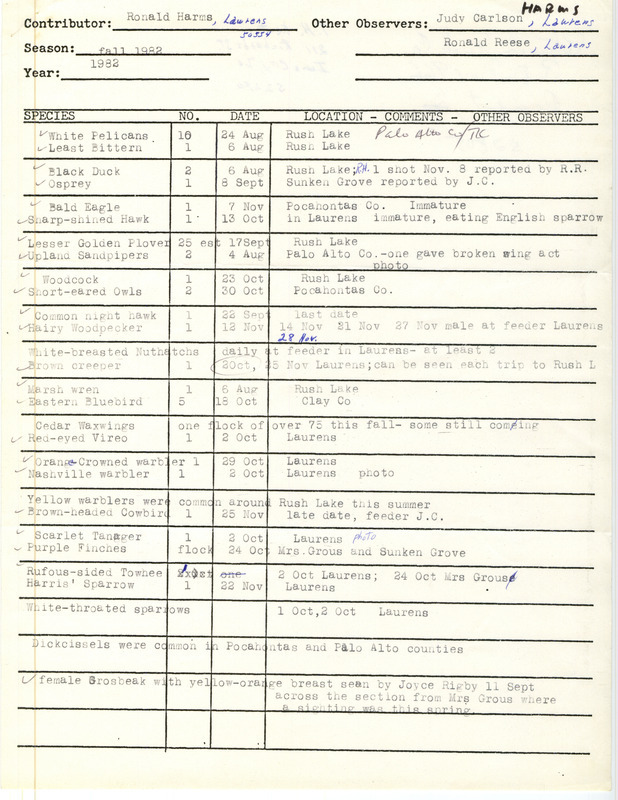 HARMS
Contributor: Ronald Harms, Laurens Other Observers: Judy Carlson, Laurens
50554
Season: fall 1982 Ronald Reese, Laurens
Year: 1982
SPECIES NO. DATE LOCATION - COMMENTS - OTHER OBSERVERS
White Pelicans 10 24 Aug Rush Lake Palo Alto Co/TK
Least Bittern 1 6 Aug Rush Lake
Black Duck 2 6 Aug Rush Lake; R.H. 1 shot Nov. 8 reported by R.R.
Osprey 1 8 Sept Sunken Grove reported by J.C.
Bald Eagle 1 7 Nov Pocahontas Co. Immature
Sharp-shined Hawk 1 13 Oct in Laurens immature, eating English sparrow
Lesser Golden Plover 25 est 17Sept Rush Lake
Upland Sandpipers 2 4 Aug Palo Alto Co.-one gave broken wing act
photo
Woodcock 1 23 Oct Rush Lake
Short-eared Owls 2 30 Oct Pocahontas Co.
Common night hawk 1 22 Sept last date
Hairy Woodpecker 1 12 Nov 14 Nov 21 Nov 27 Nov male at feeder Laurens
28 Nov.
White-breasted Nuthatchs daily at feeder in Laurens- at least 2
Brown creeper 1 2Oct, 25 Nov Laurens;can be seen each trip to Rush L
Marsh wren 1 6 Aug Rush Lake
Eastern Bluebird 5 18 Oct Clay Co
Cedar Waxwings one flock of over 75 this fall- some still coming
Red-eyed Vireo 1 2 Oct Laurens
Orange-Crowned warbler 1 29 Oct Laurens
Nashville warbler 1 2 Oct Laurens photo
Yellow warblers were common around Rush Lake this summer
Brown-headed Cowbird 1 25 Nov late date, feeder J.C.
Scarlet Tanager 1 2 Oct Laurens photo
Purple Finches flock 24 Oct Mrs.Grous and Sunken Grove
Rufous-sided Towhee one 2 Oct Laurens; 24 Oct Mrs Grous
Harris' Sparrow 1 22 Nov Laurens
White-throated sparrows 1 Oct,2 Oct Laurens
Dickcissels were common in Pocahontas and Palo Alto counties
female Grosbeak with yellow-orange breast sean by Joyce Rigby 11 Sept
across the section from Mrs Grous where
a sighting was this spring.